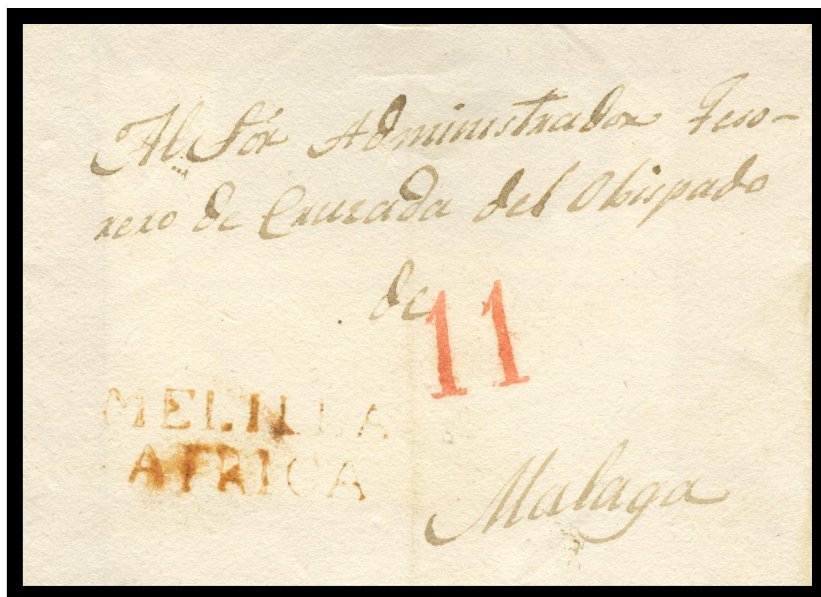 Al Sór Administrador Teso-
rero de Cruzada del Obispado
de
11
MELILLA
AFRICA
Malaga